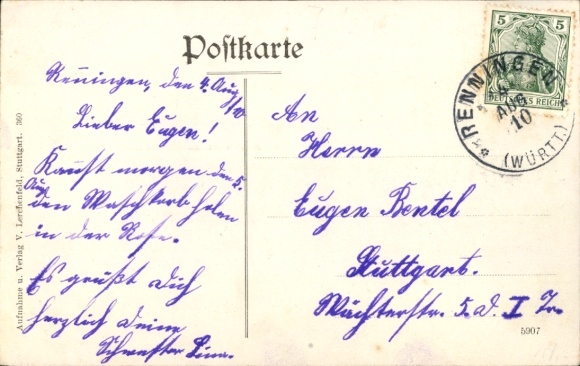 Postkarte
Renningen, den 4. Aug/10
Lieber Eugen!
Kannst morgen den 5.
Aug
den Waschkorb holen
in der Rose.
Es grüßt Dich
herzlich Deine
Schwester Lina.
An
Herrn
Eugen Bentel
Stuttgart.
Wächterstr. 5. d. I Tr.
5907
Aufnahme u. Verlag V. Lerchenfeld, Stuttgart. 369
5 5
DEUTSCHES REICH
RENNINGEN
4
AUG
10
(WÜRTT.)